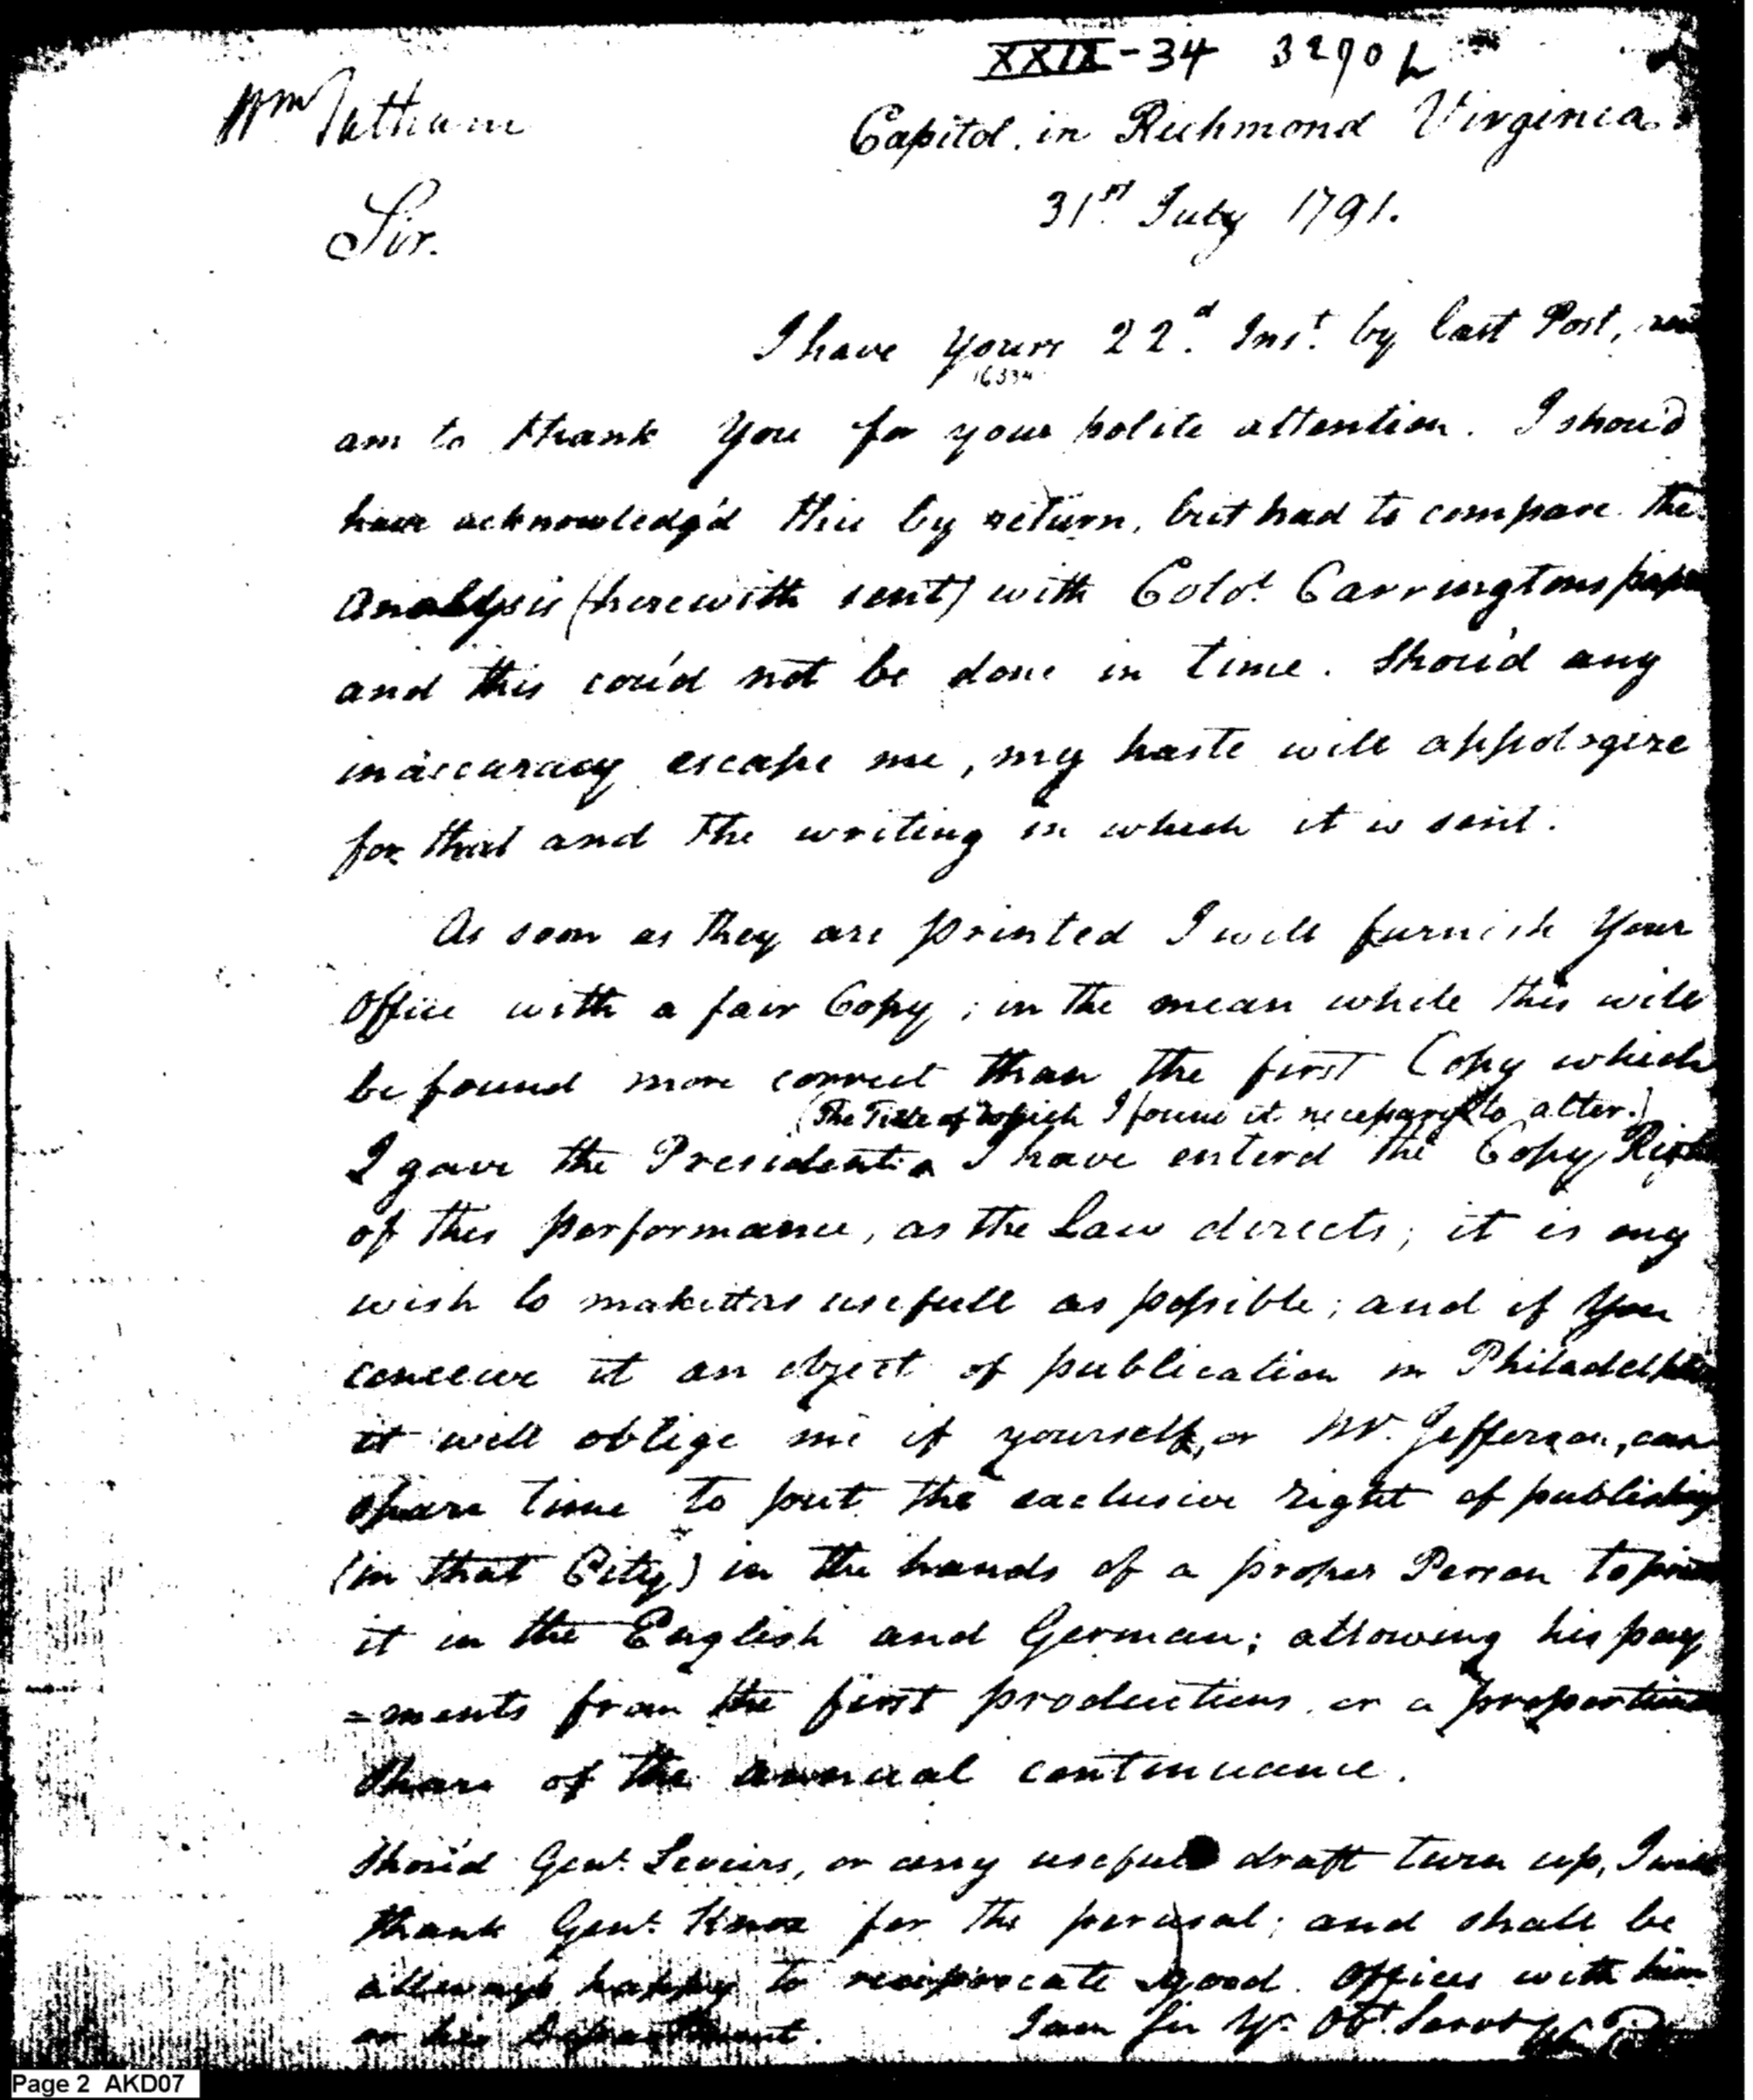 XXIX-34 3290 L
Wm Tatham
Capitol, in Richmond Virginia
31st July 1791.
Sir.
I have yours 22d. Inst. by last Post,
16334
am to thank you for your polite attention. I shou'd
have acknowledg'd this by return, but had to compare the
Analysis (herewith sent) with Colol. Carringtons
and this cou'd not be done in time. Shou'd any
inaccuracy escape me, my haste will appologize
for that and the writing in which it is sent.
As soon as they are printed I will furnish Your
Office with a fair Copy; in the mean while this will
be found more correct than the first Copy which
(The Title of which I found it necessary to alter.)
I gave the President. I have enterd the Copy Right
of this performance, as the Law directs; it is my
wish to make it as usefull as possible; and if you
conceive it an object of publication in Philadelphia
it will oblige me if yourself, or Mr. Jefferson, can
spare time to put the exclusive right of publishing
(in that City) in the hands of a proper Person to print
it in the English and German; allowing his pay
=ments from the first productions or a
share of the annual continuance.
Shou'd Genl. Seviers, or any usefull draft turn up, I will
thank Genl. Knox for the perusal; and shall be
allways happy to reciprocate good Offices with him
or his Department. I am Sir Yr. Obt. Servt
Page 2 AKD07